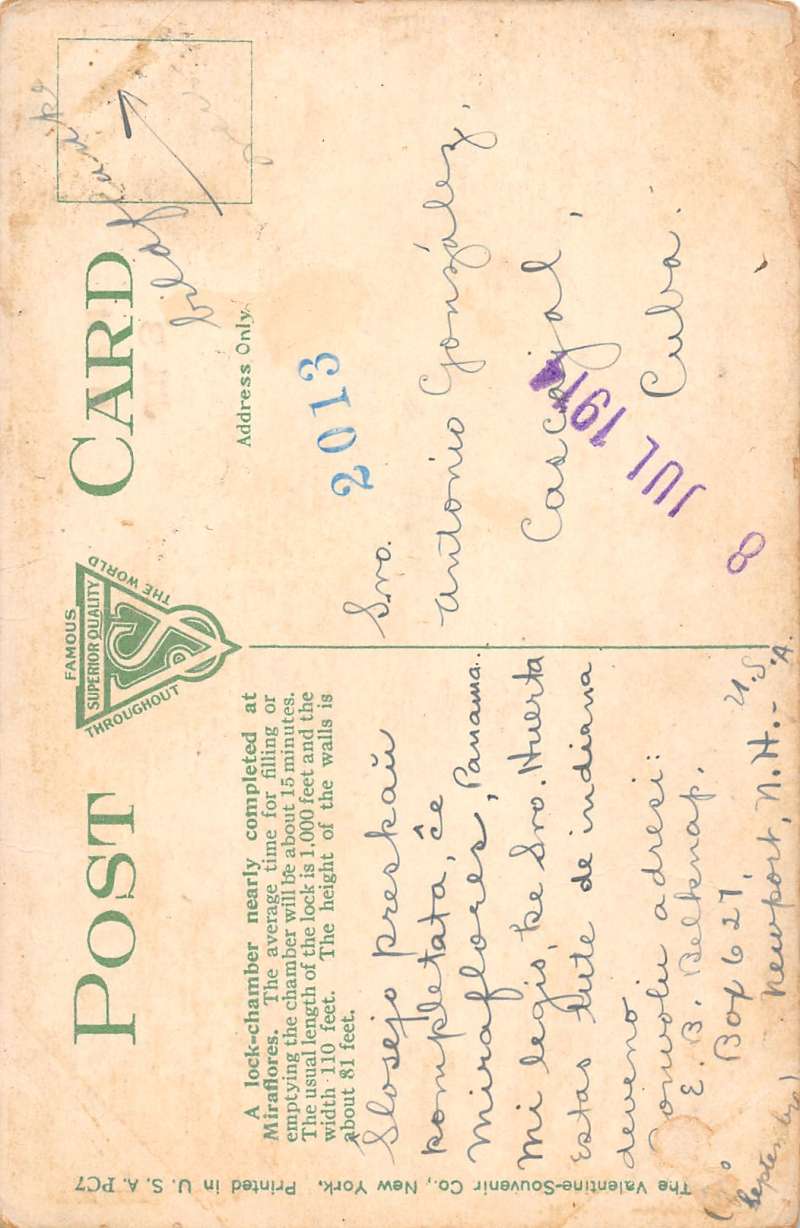 POST CARD
FAMOUS
THROUGHOUT
THE WORLD
SUPERIOR QUALITY
VS
Address Only.
bildflanke
A lock-chamber nearly completed at
Miraflores. The average time for filling or
emptying the chamber will be about 15 minutes.
The usual length of the lock is 1,000 feet and the
width 110 feet. The height of the walls is
about 81 feet.
Slosejo preskaŭ
kompletata, ĉe
Miraflores, Panama.
Mi legis, ke Sro. Huerta
Estas tute de indiana
deveno
Bonvolu adresi:
E. B. Belknap.
Box 627,
Newport, N.H. - U.S.A.
2013
Sro.
Antonio González,
Cascajal,
Cuba.
8 JUL 1914
The Valentine-Souvenir Co., New York, Printed in U. S. A. PC7